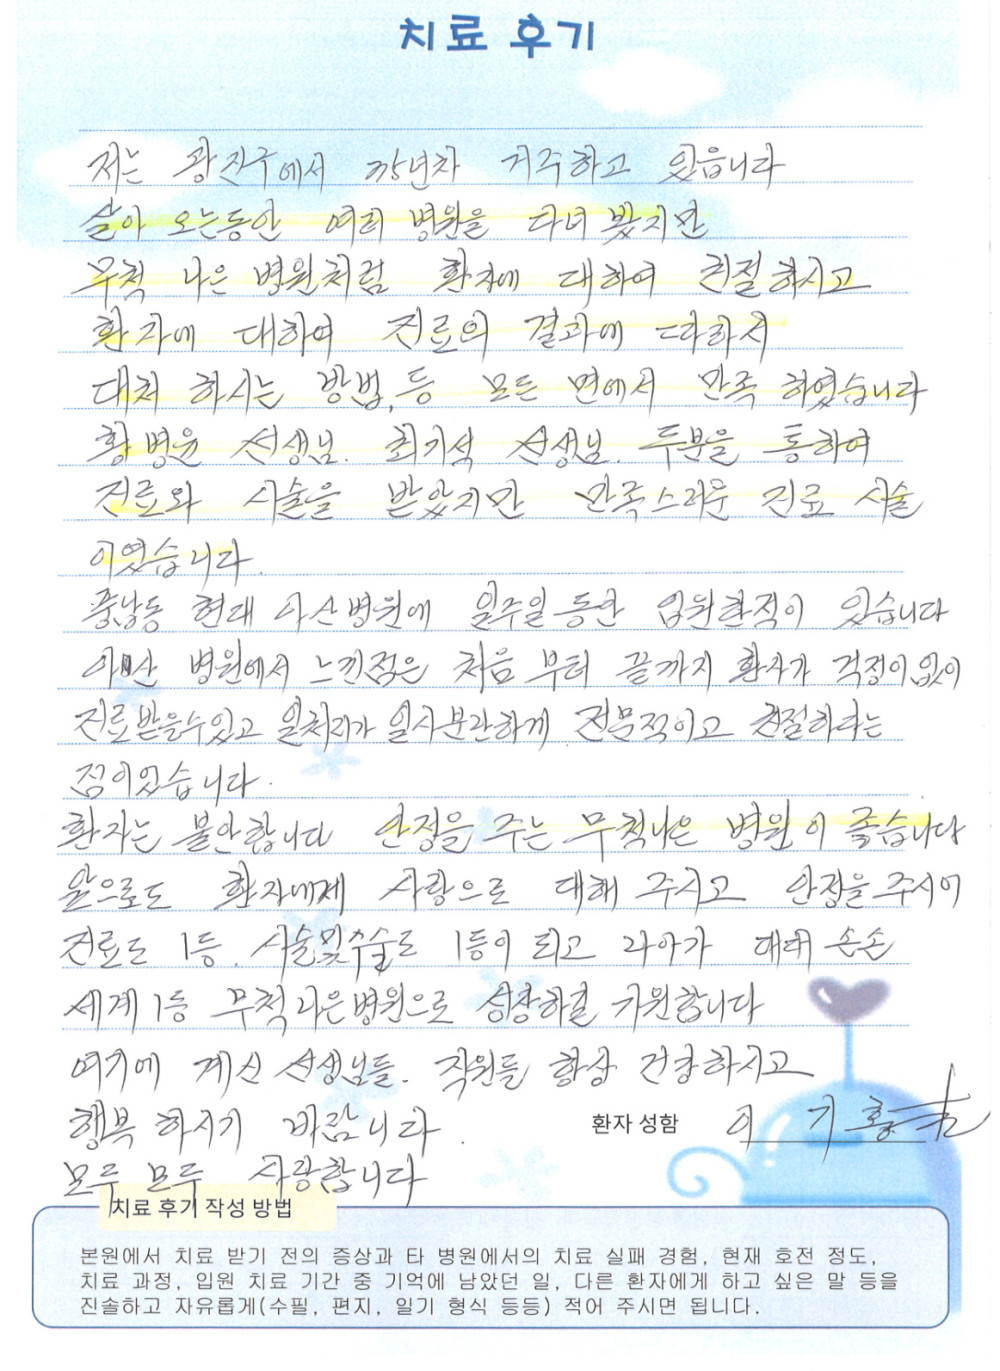 치료 후기
저는 광진구에서 거주하고 있읍니다
살아 오는동안 여러 병원을 다녀 봤지만
무척 나은 병원처럼 환자에 대하여 친절 하시고
환자에 대하여 진료의 결과에 따라서
대처 하시는 방법, 등 모든 면에서 만족 하였습니다
황병윤 선생님. 최기석 선생님. 두분을 통하여
진료와 시술을 받았지만 만족스러운 진료 시술
이였습니다.
현대 아산병원에 일주일 동안 입원한적이 있습니다
아산 병원에서 느낀점은 처음 부터 끝까지 환자가 걱정이 없이
진료 받을수 있고 일처리가 일사분란하게 전문적이고 친절하다는
점이 있습니다.
환자는 불안합니다 안정을 주는 무척나은 병원이 좋습니다
앞으로도 환자에게 사랑으로 대해 주시고 안정을 주시어
진료도 1등. 시술및수술도 1등이 되고 나아가 대대 손손
세계 1등 무척나은병원으로 성장하길 기원합니다
여기에 계신 선생님들. 직원들 항상 건강하시고
행복 하시기 바랍니다.
환자 성함 이 기 홍
모두 모두 사랑합니다
치료 후기 작성 방법
본원에서 치료 받기 전의 증상과 타 병원에서의 치료 실패 경험, 현재 호전 정도,
치료 과정, 입원 치료 기간 중 기억에 남았던 일, 다른 환자에게 하고 싶은 말 등을
진솔하고 자유롭게(수필, 편지, 일기 형식 등등) 적어 주시면 됩니다.